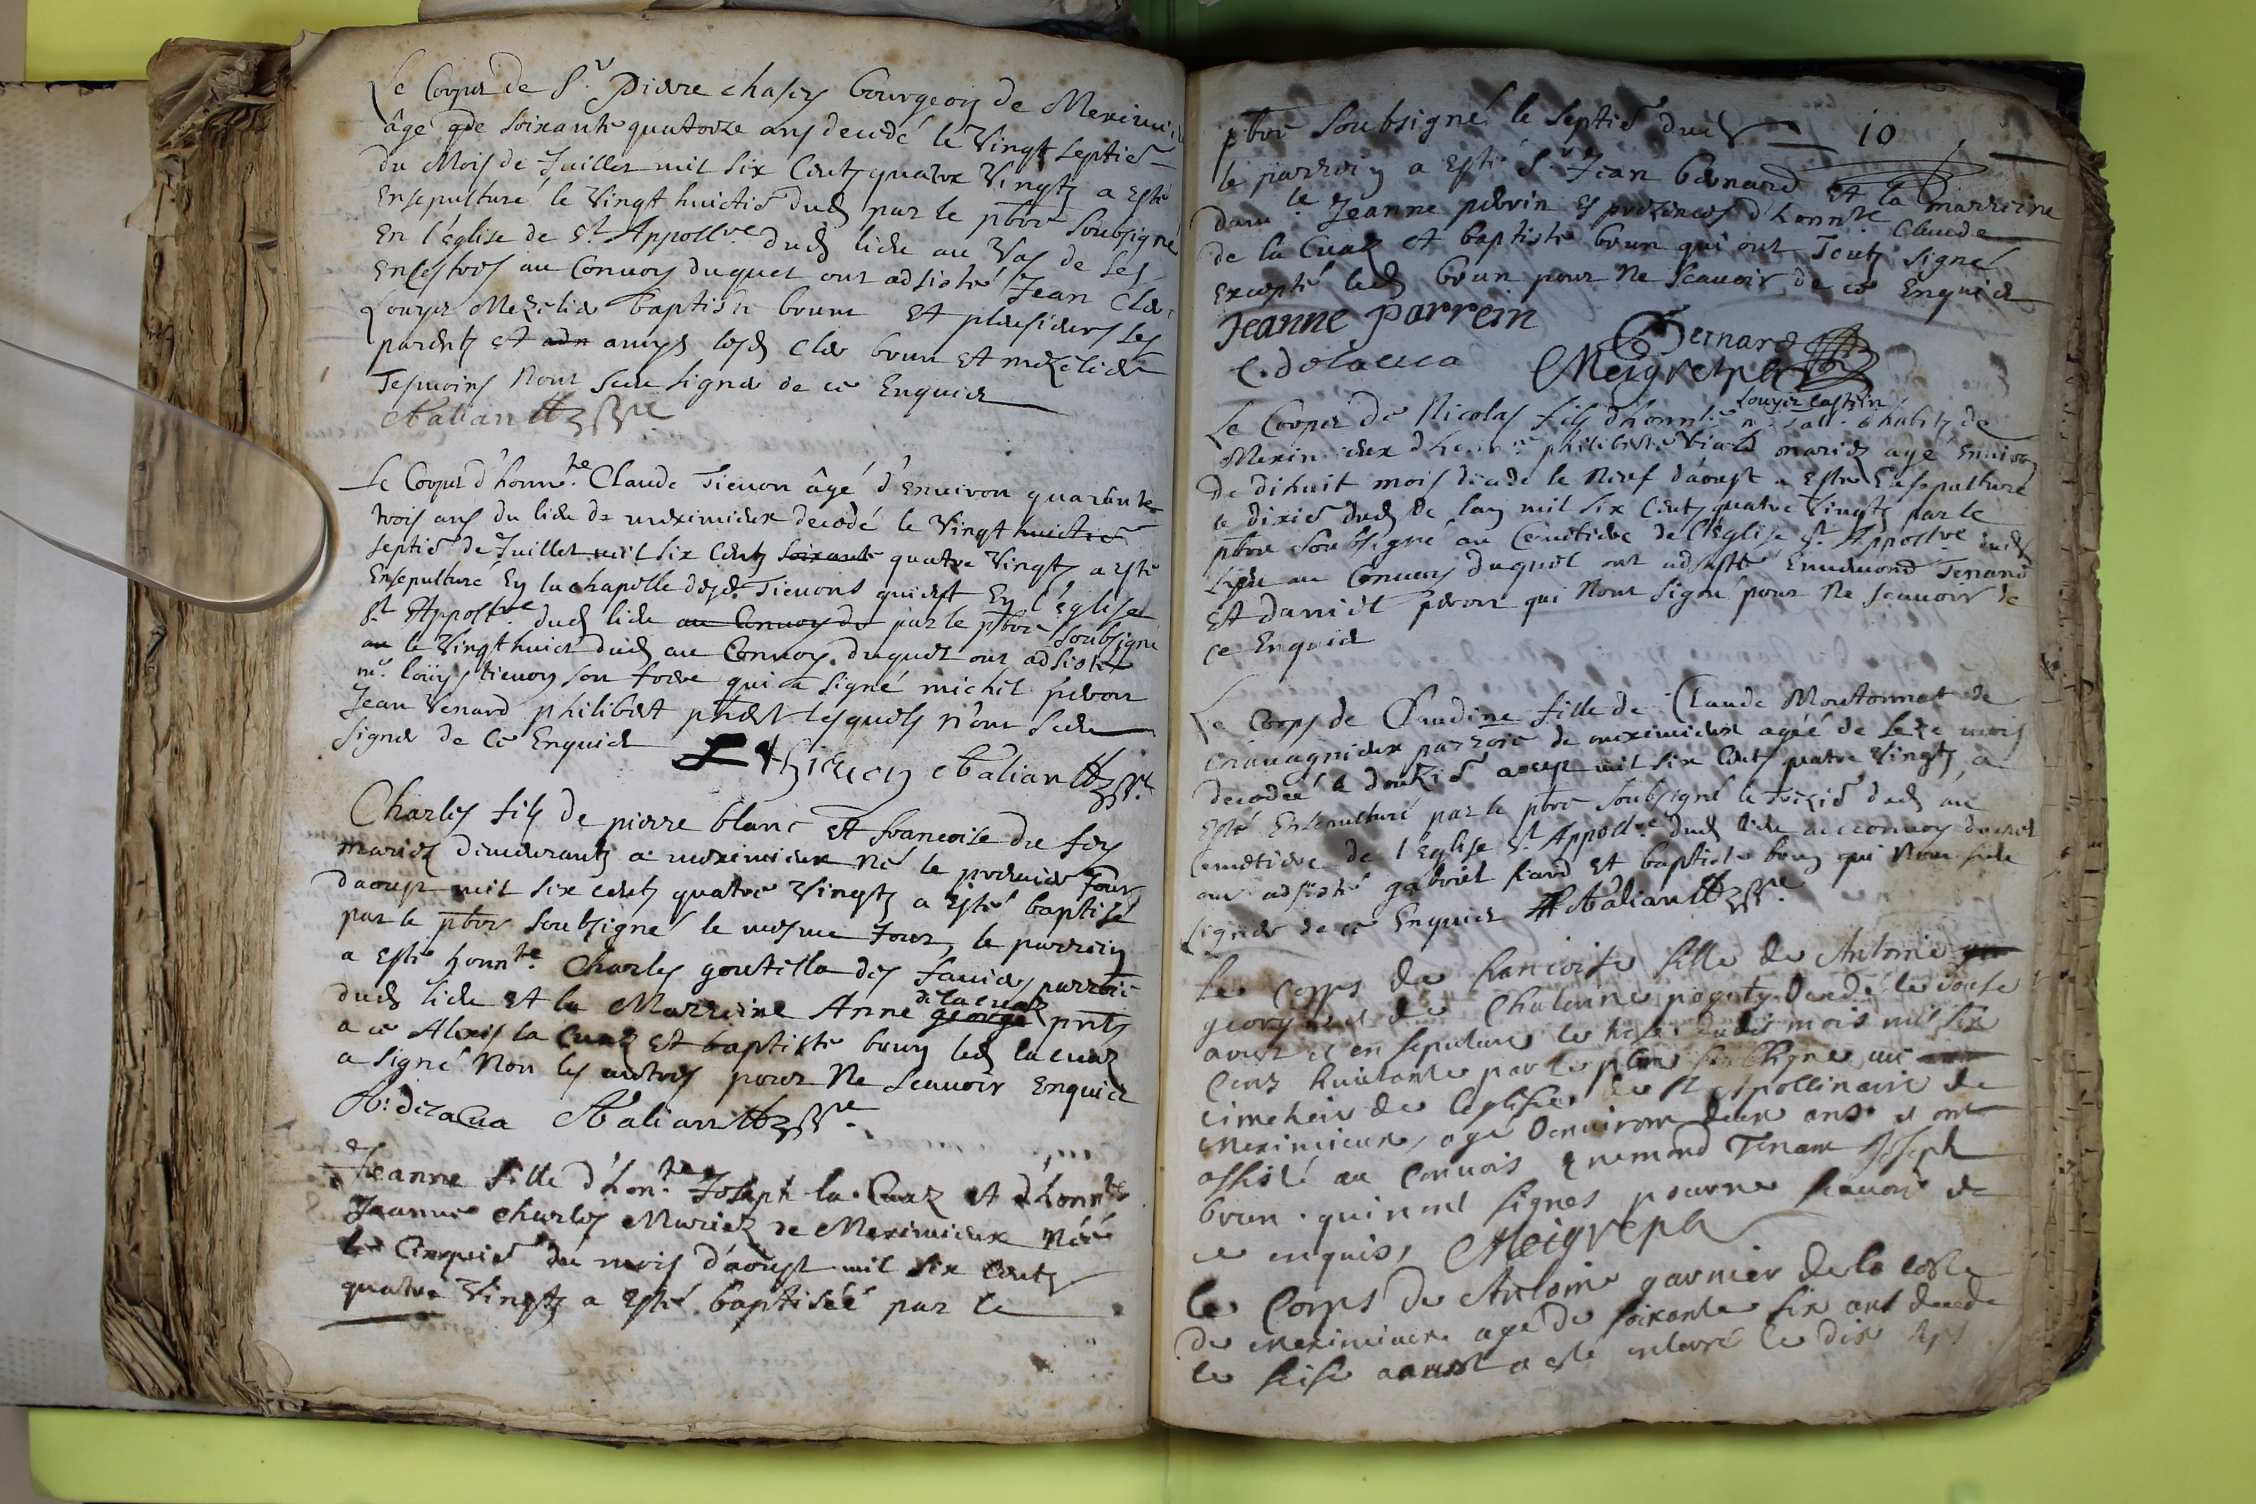 Le Corps de Sr. Pierre chasey bourgeois de Meximi
âgé de soixante quatorze ans decedé le Vingt septie
du Mois de Juillet mil six Centz quatre Vingtz a esté
Ensepulturé le Vingt huictie dud par le pbre soubsigné
En l'église de St Appollre. dud lieu au Vas de ses
Encestres au Convoy duquel ont adsisté Jean Cler
Louys Mezelier baptiste brun et plusieurs ses
parents et adn amys lesd Cler brun et mezelier
Tesmoins Nont sceu signer de ce Enquis
le Corps d'honnte. Claude Tienon âgé d'Environ quarante
trois ans du lieu de meximieux decedé le Vingt huictie
septie de Juillet mil six Centz soixante quatre Vingtz a esté
Ensepulturé En la chapelle desd. Tienons qui est En l'Eglise
St Appollre. dud lieu au Convoy du par le pbre soubsigné
au le Vingt huict dud au Convoy duquel ont adsisté
mr. louys tienon son frere qui a signé michel peron
Jean Venard philibert lesquels n'ont sceu
signer de Ce Enquis
Charles fils de pierre blanc et francoise du fey
mariez demeurantz a meximieux Né le premier Jour
daoust mil six centz quatre Vingtz a esté baptisé
par le pbre soubsigné le mesme Jour, le parrein
a esté honnte. Charles goutilla des parroie
dud lieu et la Marreine Anne george pntz
de la cuaz
a ce Alexis la Cuaz et baptiste brun led lacuaz
a signé Non les autres pour Ne scavoir Enquis
A. delaCua
Jeanne fille d'honte. Joseph la Cuaz et d'honnte
Jeanne charles Mariez de Meximieux Née
le Cinquie du mois d'aoust mil six Centz
quatre Vingtz a esté baptiséé par le
pbre soubsigné le septie dud
10
le parrein a esté Sr Jean bernard et la marreine
damlle Jeanne perrin Es presences d'honnte Claude
de la Cuaz et baptiste brun qui ont Toutz signé
Excepté led brun pour Ne scavoir de ce Enquis
Jeanne parrein
Bernard
C. delacua
Meigret pbr
Le Corps de Nicolas fils dhonnte
Louys
habitz de
Meximieux philiberte mariez agé Environ
De dihuit mois decedé le Neuf d'aoust a esté Ensepulturé
le dixie dud de lan mil six Centz quatre Vingtz par le
pbre soubsigné au Cemetiere de l'Eglise St Appollre. dud
lieu au Convoy duquel ont adsisté Ennemond Tenand
Et daniel peron qui Nont signé pour Ne scavoir de
ce Enquis
Le Corps de Claudine fille de Claude Moutonnat de
Chavagnieux parroie de meximieux agéé de seze mois
decedéé le douzie aoust mil six Centz quatre Vingtz a
esté Ensepulturé par le pbre soubsigné le treizie dud au
Cemetiere de l'Eglise St. Appollre dud lieu au convoy duquel
ont adsisté gabriel et baptiste brun qui Nont sceu
signer de ce Enquis
le Corps de francoise fille de Antoine
george et de Claudine decedé le douse
aoust et en sepulture le treise dudit mois mil six
Cens huictante par le pbre soubsigne au
cimetiere de leglise de St Apollinaire de
meximieux, agé denviron deux ans et ont
assisté au Convois Enemond Tenant Joseph
brun qui nont signes pour ne scavoir de
ce enquis, Meigret pbr
le Corps de Antoine garnier de la coste
de meximieux agé de soixante six ans decede
le seise aoust a este enterré le dix sept